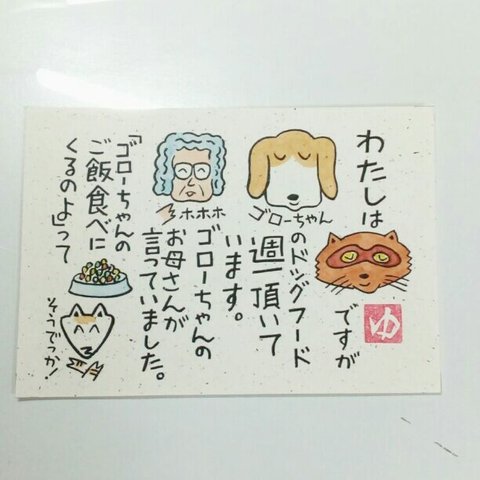 わたしは
ですが
ゴローちゃん
のドッグフード
週一頂いて
います。
ホホホ
ゴローちゃんの
お母さんが
言っていました。
「ゴローちゃんの
ご飯食べに
くるのよ」って
そうでっか!
ゆ